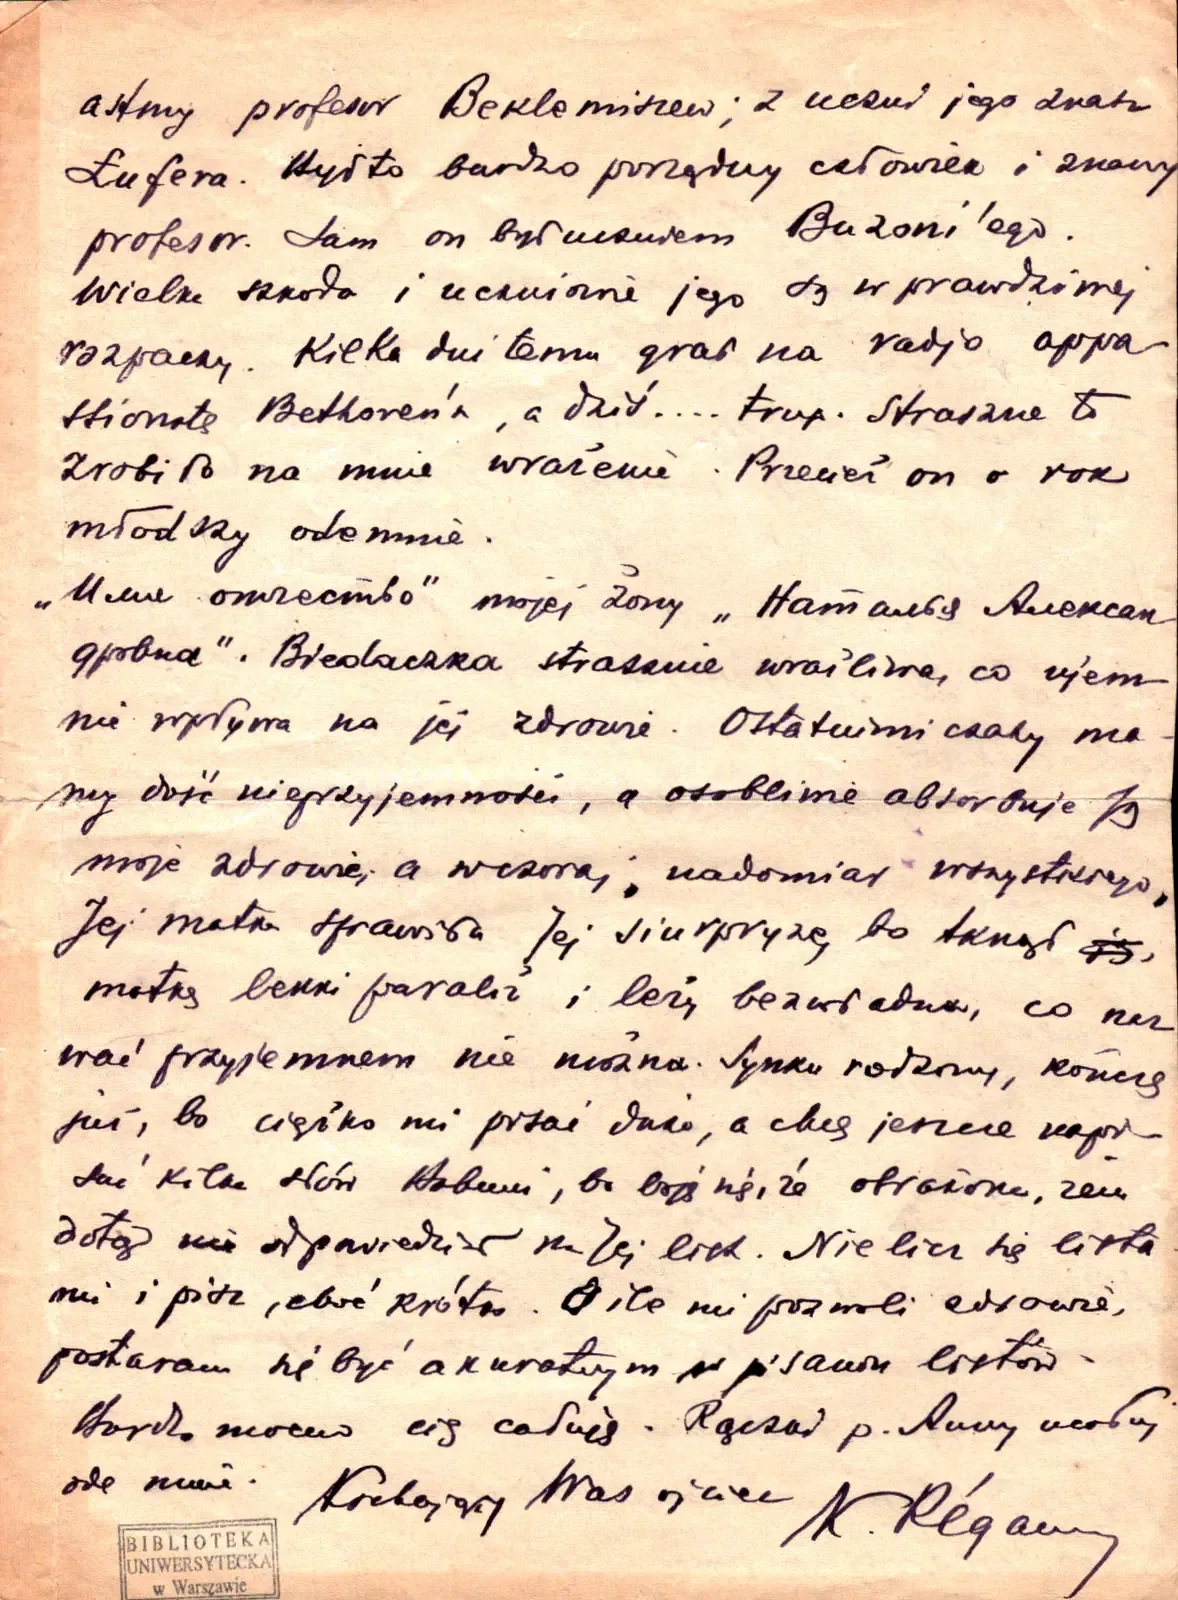 astmy profesor Beklemiszew; z uczni jego znasz
Łufera. Był to bardzo porządny człowiek i znany
profesor. Sam on był uczniem Buzoni'ego.
Wielka szkoda i uczniowie jego są w prawdziwej
rozpaczy. Kilka dni temu grał na radjo appa-
ssionatę Bethoven'a, a dziś.... trup. Straszne to
zrobiło na mnie wrażenie. Przecież on o rok
młodszy odemnie.
„Имя отчество" mojej żony „Наталья Алексан-
дровна". Biedaczka strasznie wrażliwa, co ujem-
nie wpływa na jej zdrowie. Ostatnimi czasy ma-
my dość nieprzyjemności, a osobliwie absorbuje Ją
moje zdrowie, a wczoraj, nadomiar wszystkiego,
Jej matka sprawiła Jej siurpryzę, bo tknął ją,
matkę lekki paraliż i leży bezwładna, co naz
wać przyjemnem nie można. Synku rodzony, kończę
już, bo ciężko mi pisać dużo, a chcę jeszcze napi-
sać kilka słów, bo boję się, że obrażona, żem
dotąd nie odpowiedział na Jej list. Nie licz się lista
mi i pisz, choć krótko. O ile mi pozwoli zdrowie,
postaram się być akuratnym w pisaniu listów.
Bardzo mocno cię całuję. Rączki p. Anny ucałuj
ode mnie. Kochający Was ojciec K. Régamey
BIBLIOTEKA
UNIWERSYTECKA
w Warszawie